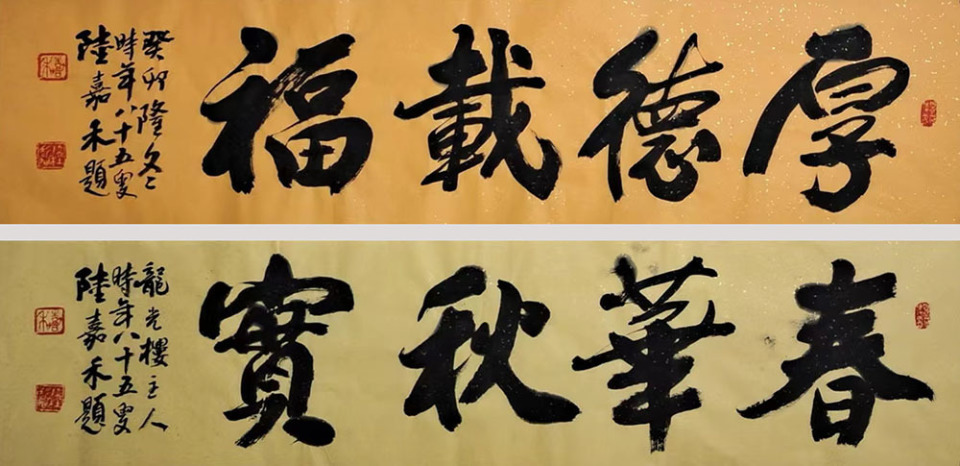 厚德載福
癸卯隆冬
時年八十五叟
陸嘉禾題
春華秋實
龍光樓主人
時年八十五叟
陸嘉禾題